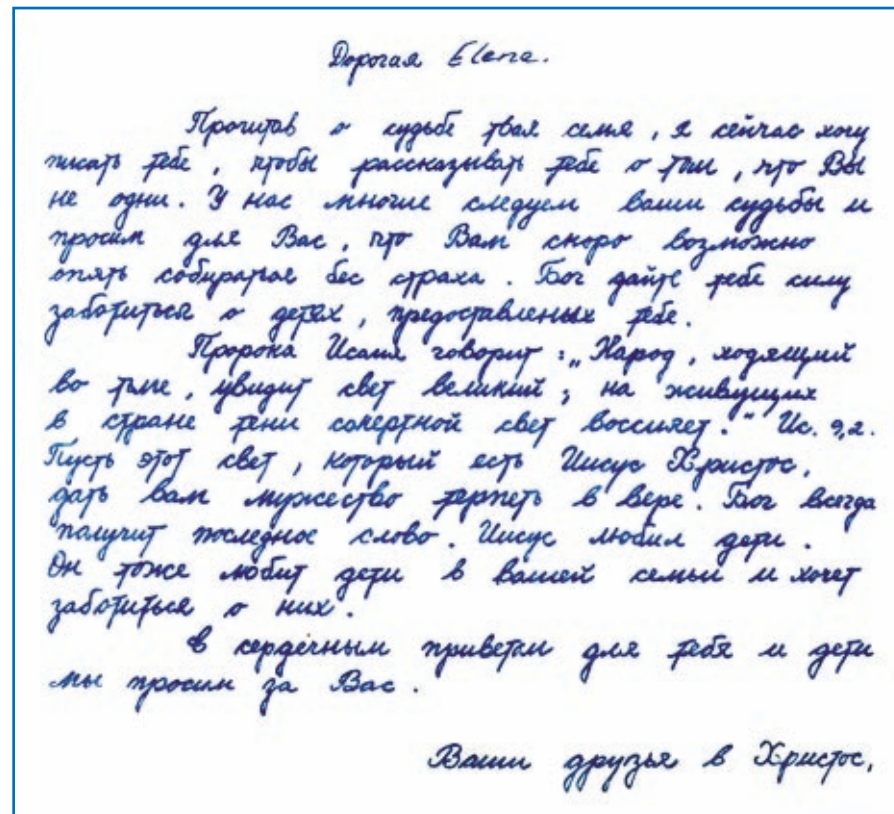 Дорогая Elena.
Прочитав о судьбе твая семья, я сейчас хочу
писать тебе, чтобы рассказывать тебе о том, что Вы
не одни. У нас многие следуем ваши судьбы и
просим для Вас, что Вам скоро возможно
опять собираться бес страха. Бог дайте тебе силу
заботиться о детях, предоставленых тебе.
Пророка Исаия говорит: „Народ, ходящий
во тьме, увидит свет великий; на живущих
в стране тени смертной свет воссияет." Ис. 9,2.
Пусть этот свет, который есть Иисус Христос,
дать вам мужество терпеть в вере. Бог всегда
получит последное слово. Иисус любил дети.
Он тоже любит дети в вашей семьи и хочет
заботиться о них.
В сердечным приветом для тебя и дети
мы просим за Вас.
Ваши друзья в Христос,